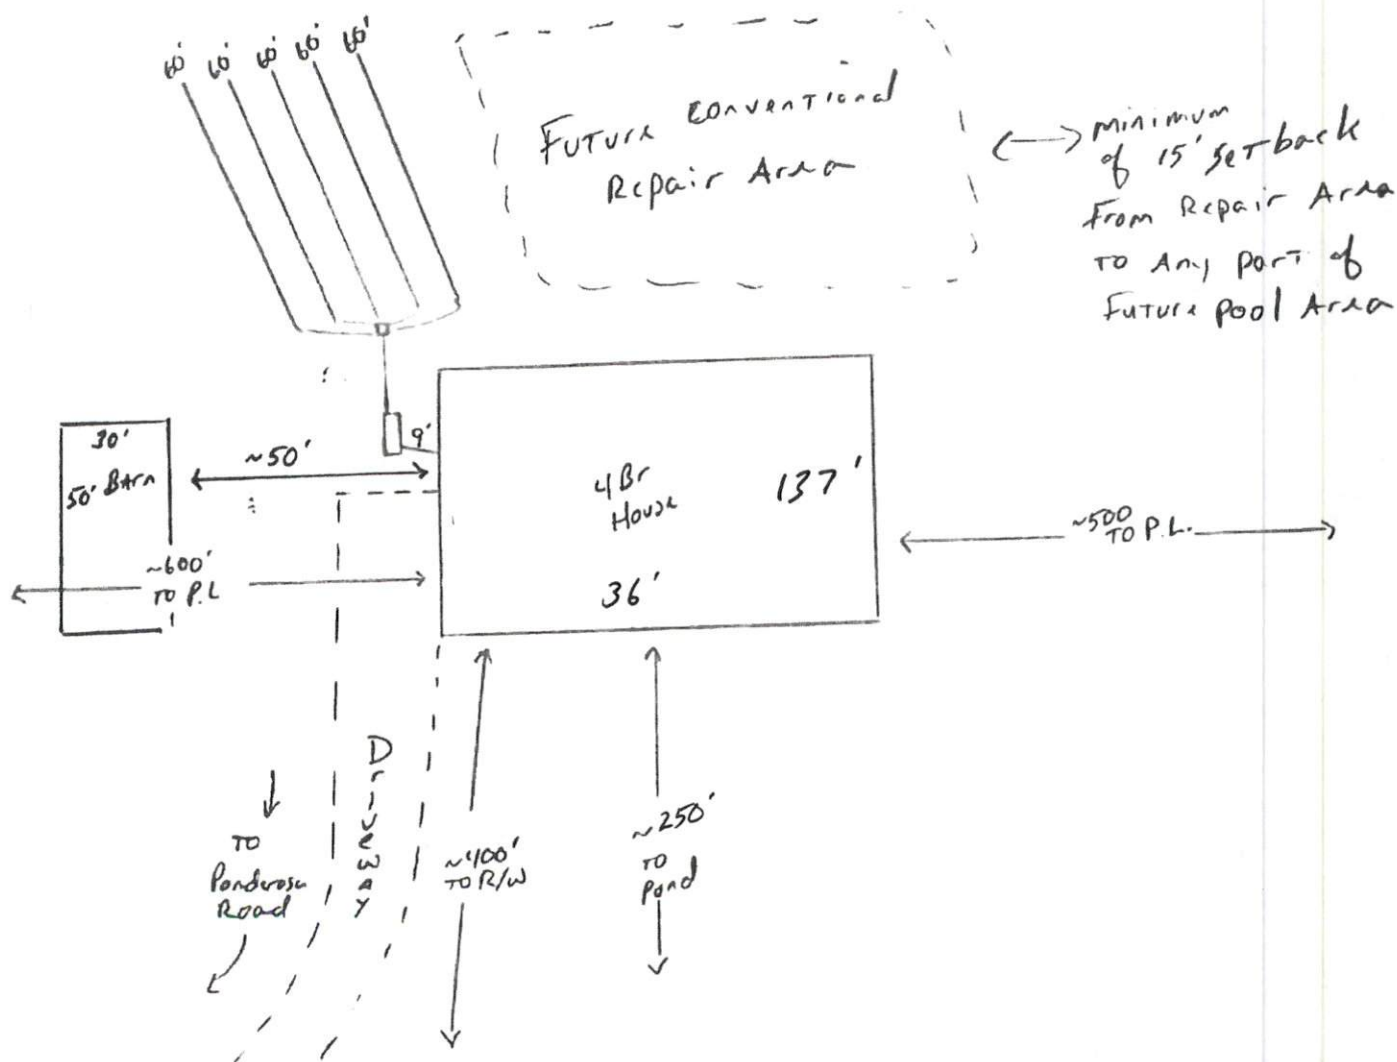 60' 60' 60' 60' 60'
Future Conventional
Repair Area
minimum
of 15' setback
From Repair Area
TO Any part of
Future pool Area
30'
50' Barn
~50'
9'
4Br
House
137'
36'
~600'
TO P.L
~500
TO P.L.
Driveway
TO
Ponderosa
Road
~400'
TO R/W
~250'
TO
pond